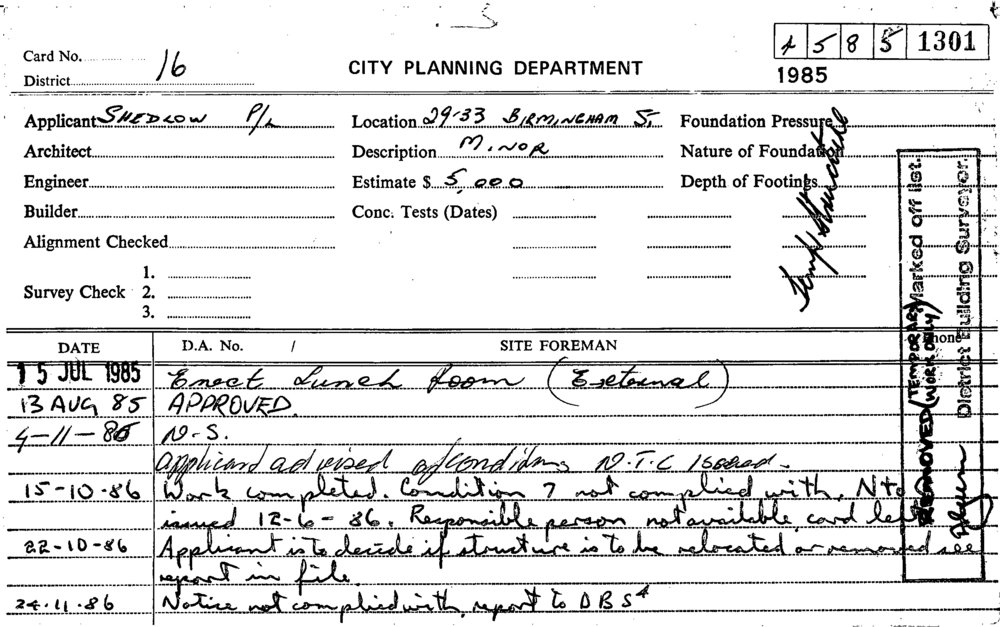 4 5 8 5 1301
1985
Card No. 16
District
CITY PLANNING DEPARTMENT
Applicant SHEDLOW P/L
Location 29-33 BIRMINGHAM ST
Foundation Pressure
Architect
Description MINOR
Nature of Foundation
Engineer
Estimate $ 5,000
Depth of Footings
Builder
Conc. Tests (Dates)
Alignment Checked
Survey Check
1.
2.
3.
Temp Structure
REMOVED (TEMPORARY WORK ONLY) Marked off list.
District Building Surveyor.
DATE D.A. No. / SITE FOREMAN Phone
15 JUL 1985 Erect Lunch Room (External)
13 AUG 85 APPROVED.
4-11-85 N.S.
Applicant advised of conditions N.T.C Issued.
15-10-86 Work completed. Condition 7 not complied with. Ntc
issued 12-6-86. Responsible person not available, card left
22-10-86 Applicant is to decide if structure is to be relocated or removed see
report in file.
24.11.86 Notice not complied with, report to DBS4